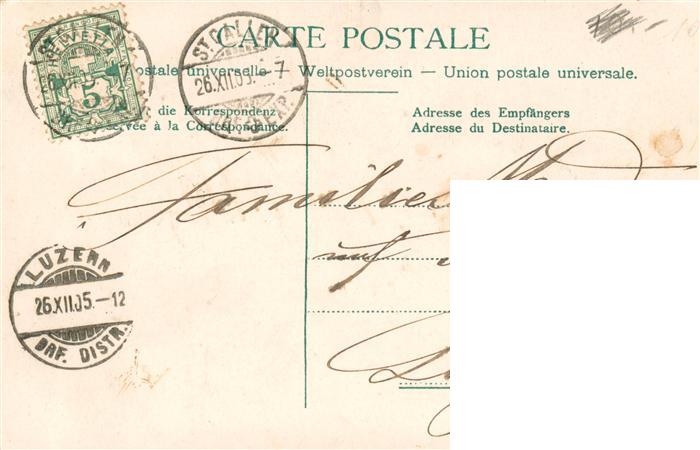 CARTE POSTALE
Postale universelle — Weltpostverein — Union postale universale.
die Korrespondenz
à la Correspondance.
Adresse des Empfängers
Adresse du Destinataire.
HELVETIA
5
ST. GALLEN
26.XII.05.-7
Familie
LUZERN
26.XII.05.-12
BRF. DISTR.